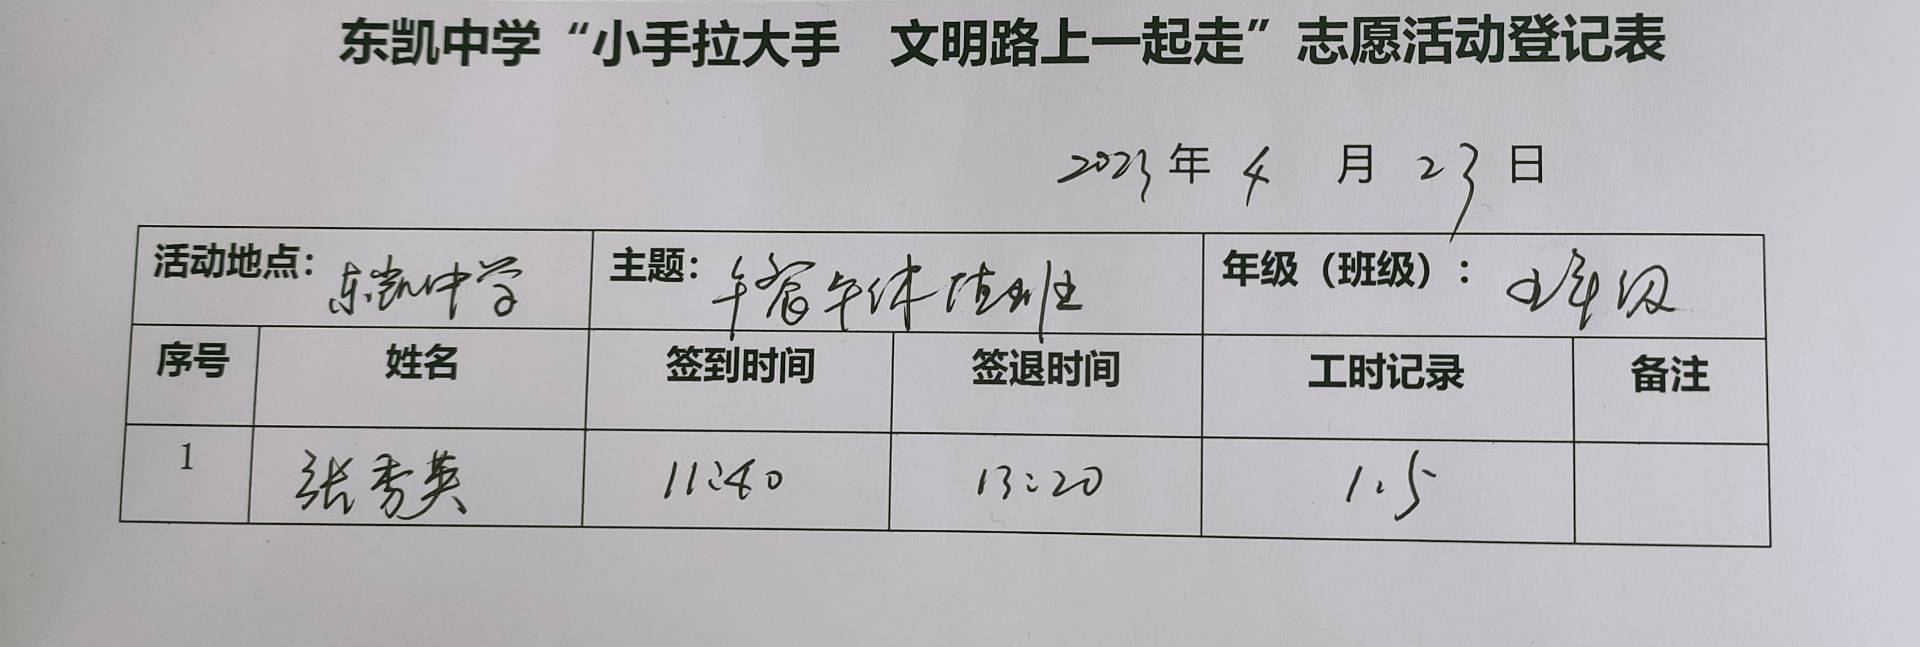 东凯中学“小手拉大手　文明路上一起走”志愿活动登记表
2023年 4 月 23 日
活动地点：东凯中学 主题：午餐午休值班 年级（班级）：五年级
序号 姓名 签到时间 签退时间 工时记录 备注
1 张秀英 11:40 13:20 1.5